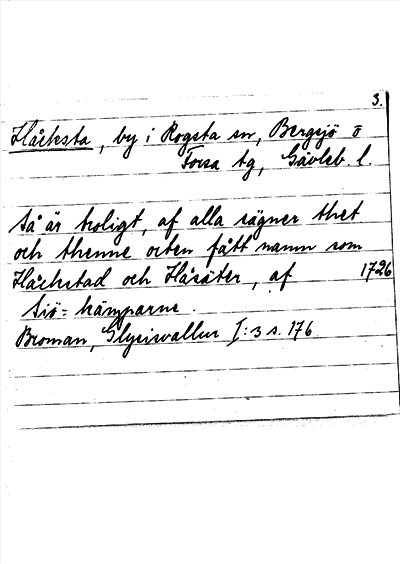 3.
Håcksta, by i Rogsta sn, Bergsjö o
Forsa tg, Gävleb l.
Så är troligt, af alla sägner thet
och thenne orten fått namn som
Håckstad och Håsäter, af 1726
Siö-kämparne.
Broman, Glysisvallur I:3 s. 176.